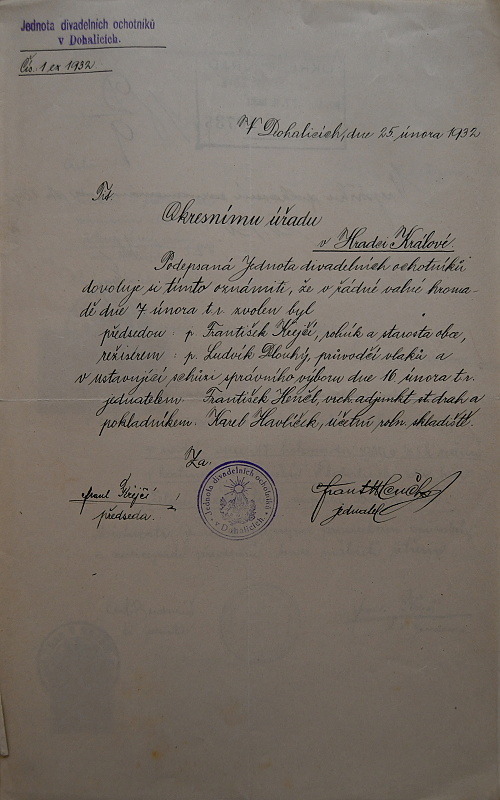 Jednota divadelních ochotníků
v Dohalicích.
Čís. 1 ex 1932
V Dohalicích, dne 25. února 1932
Tit.
Okresnímu úřadu
v Hradci Králové.
Podepsaná Jednota divadelních ochotníků
dovoluje si tímto oznámiti, že v řádné valné hroma-
dě dne 7 února t.r. zvolen byl
předsedou: p. František Krejčí, rolník a starosta obce,
režisérem: p. Ludvík Dlouhý, průvodčí vlaků a
v ustavující schůzi správního výboru dne 16 února t.r.
jednatelem: František Henčl, vrch. adjunkt st. drah a
pokladníkem: Karel Havlíček, účetní roln. skladiště.
Za
Jednota divadelních ochotníků
v Dohalicích.
Frant Krejčí
předseda.
Frant Henčl
jednatel